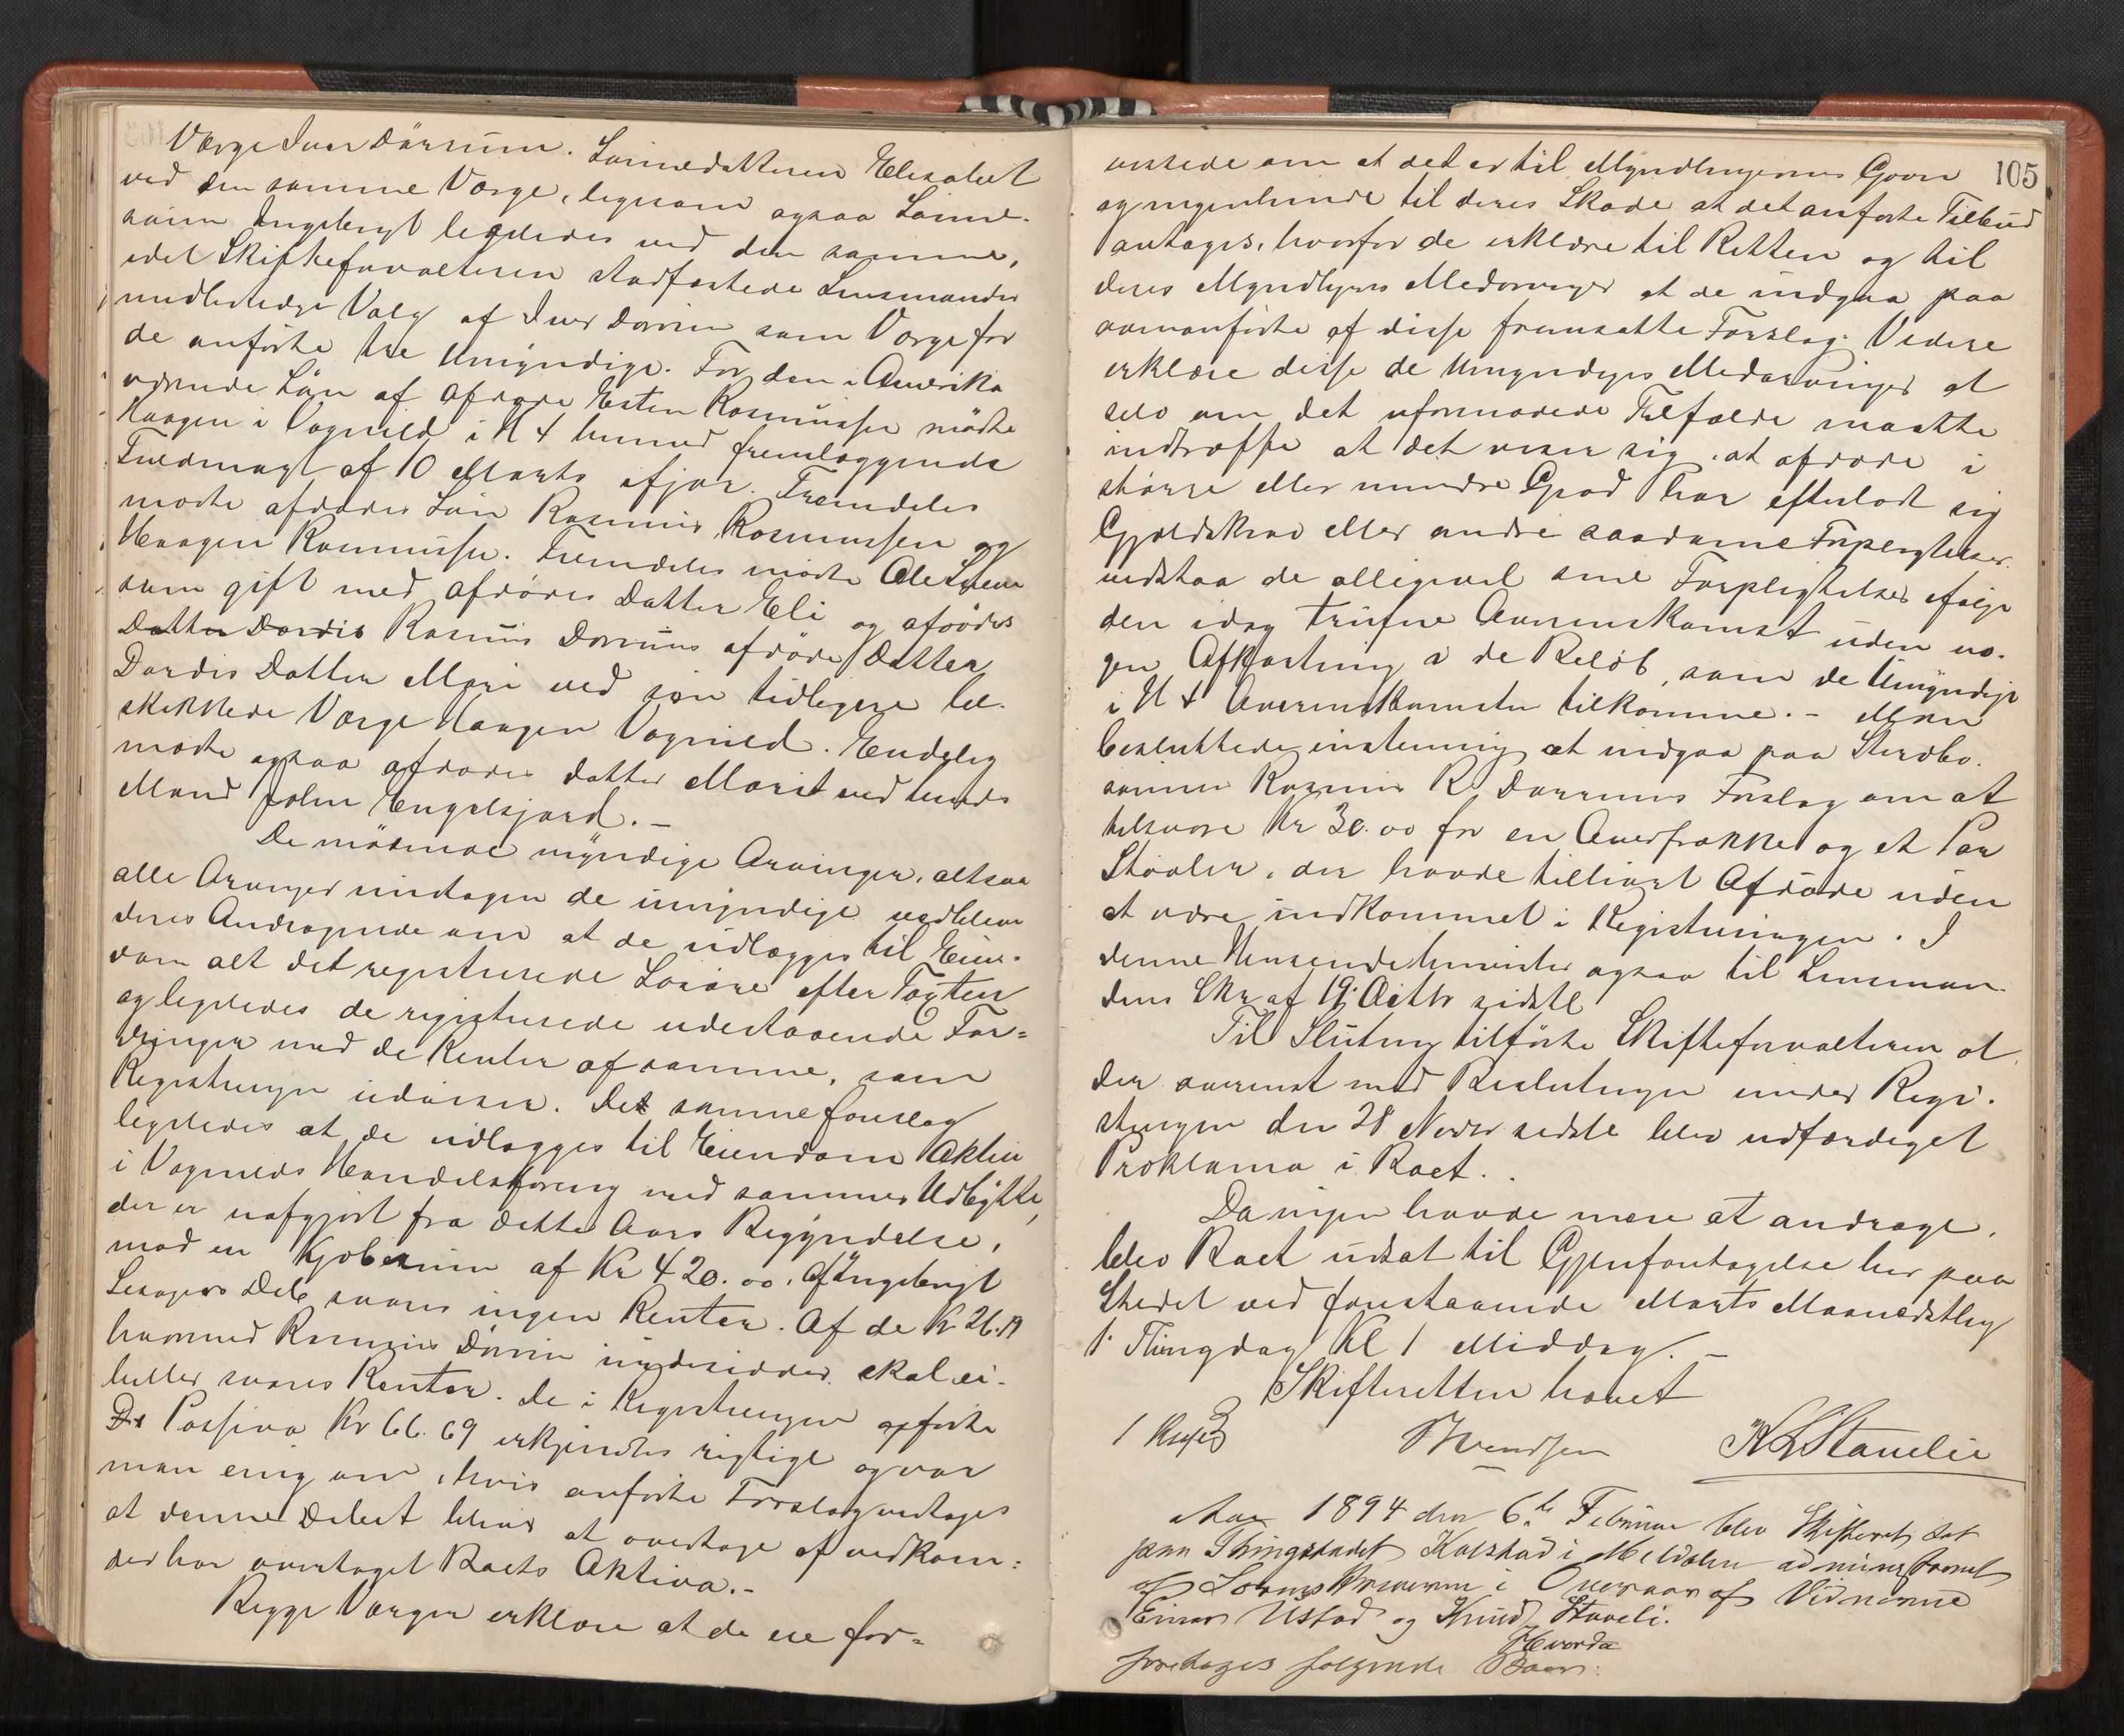 Værge Iver Dörrum. Sönnedatteren Elisabet
ved den samme Værge, ligesom ogsaa Sönne-
sönn Ingebrigt ligeledes ved den samme,
idet Skifteforvalteren stadfæstede Lensmandens
midlertidige Valg af Iver Dörrum som Værge for
de anförte tre Umyndige. For den i Amerika
værende Sön af Afdøde Esten Rasmussen mödte
Haagen i Vognild i H t hermed fremlæggende
Fuldmagt af 10 Marts ifjor. Fremdeles
mødte afdødes Sön Rasmus Rasmussen og
Haagen Rasmussen. Fremdeles mødte Ole
som gift med Afdödes Datter Eli og afdödes
Datter Dordis Rasmus Dörrums afdöde Datter
Dordis Datter Mari ved sin tidligere be-
skikkede Værge Haagen Vognild. Endelig
mødte ogsaa afdødes datter Marit ved hendes
Mand John Engelsjord. –
De mödende myndige Arvinger, altsaa
alle Arvinger undtagen de umyndige
deres Andragende om at de udlægges til Eien-
dom alt det registrerede Lösöre efter Taxten
og ligeledes de registrerede udestaaende For=
dringer med de Renter af samme, som
Registringen udviser. Det samme foreslog
ligeledes at de udlægges til Eiendom Aktien
i Vognilds Handelsforening med sammes Udbytte,
der er uafgjort fra dette Aars Begyndelse,
mod en Kjöbesum af Kr 420.00. Af Ingebrigt
Del svares ingen Renter. Af de Kr 26.19
hvormed Rasmus Dörrum indesidder skal ei-
heller svares Renter. De i Registringen opförte
Ds Passiva Kr 66.69 erkjendtes rigtige og var
man enig om, hvis anförte Forslag antages
at denne Debet bliver at overtage af vedkom=
der har overtaget Boets Aktiva.–
Begge Værger erklære at de ere for=
105
vissede om at det er til Myndlingernes Gavn
og ingenlunde til deres Skade at det anførte Tilbud
antages, hvorfor de erklære til Retten og til
deres Myndlings Medarvinger at de indgaa paa
ovenanförte af disse fremsatte Forslag. Videre
erklære disse de Umyndiges Medarvinger at
selv om det uformodede Tilfælde maatte
indtræffe at det viser sig, at afdøde i
större eller mindre Grad har efterladt sig
Gjældskrav eller andre saadanne Forpligtelser.
vedstaa de alligevel sine Forpligtelser ifölge
den idag trufne Overenskomst uden no-
gen Afkortning i de Belöb, som de Umyndige
i H t Overenskomsten tilkomme. – Man
besluttede enstemmig at indgaa paa Sterbo-
sönnen Rasmus R. Dørrums Forslag om at
tilsvare Kr 30.00 for en Overfrakke og et Par
Støvler, der havde tilhørt Afdøde uden
at være indkommet i Registreringen. I
denne Henseende henvistes ogsaa til Lensman-
dens Skr af 19. Octbr sidstl
Til Slutning tilförte Skifteforvalteren at
der overenst med Beslutningen under Regi-
stringen den 28 Novbr sidstl blev udfærdiget
Proklama i Boet.
Da ingen havde mere at andrage,
blev Boet udsat til Gjenforetagelse her paa
Stedet ved forestaaende Marts Maanedsthing
1. Thingdag Kl 1 Middag. –
Skifteretten hævet
K L Stauelie
Aar 1894 den 6te Februar blev Skifteret sat
paa Thingstedet Kalstad i Meldalen administreret
af Sorenskriveren i Overvær af Vidnerne
Einar Ustad og Knud Staveli.
Hvorda
foretoges følgende Boer: